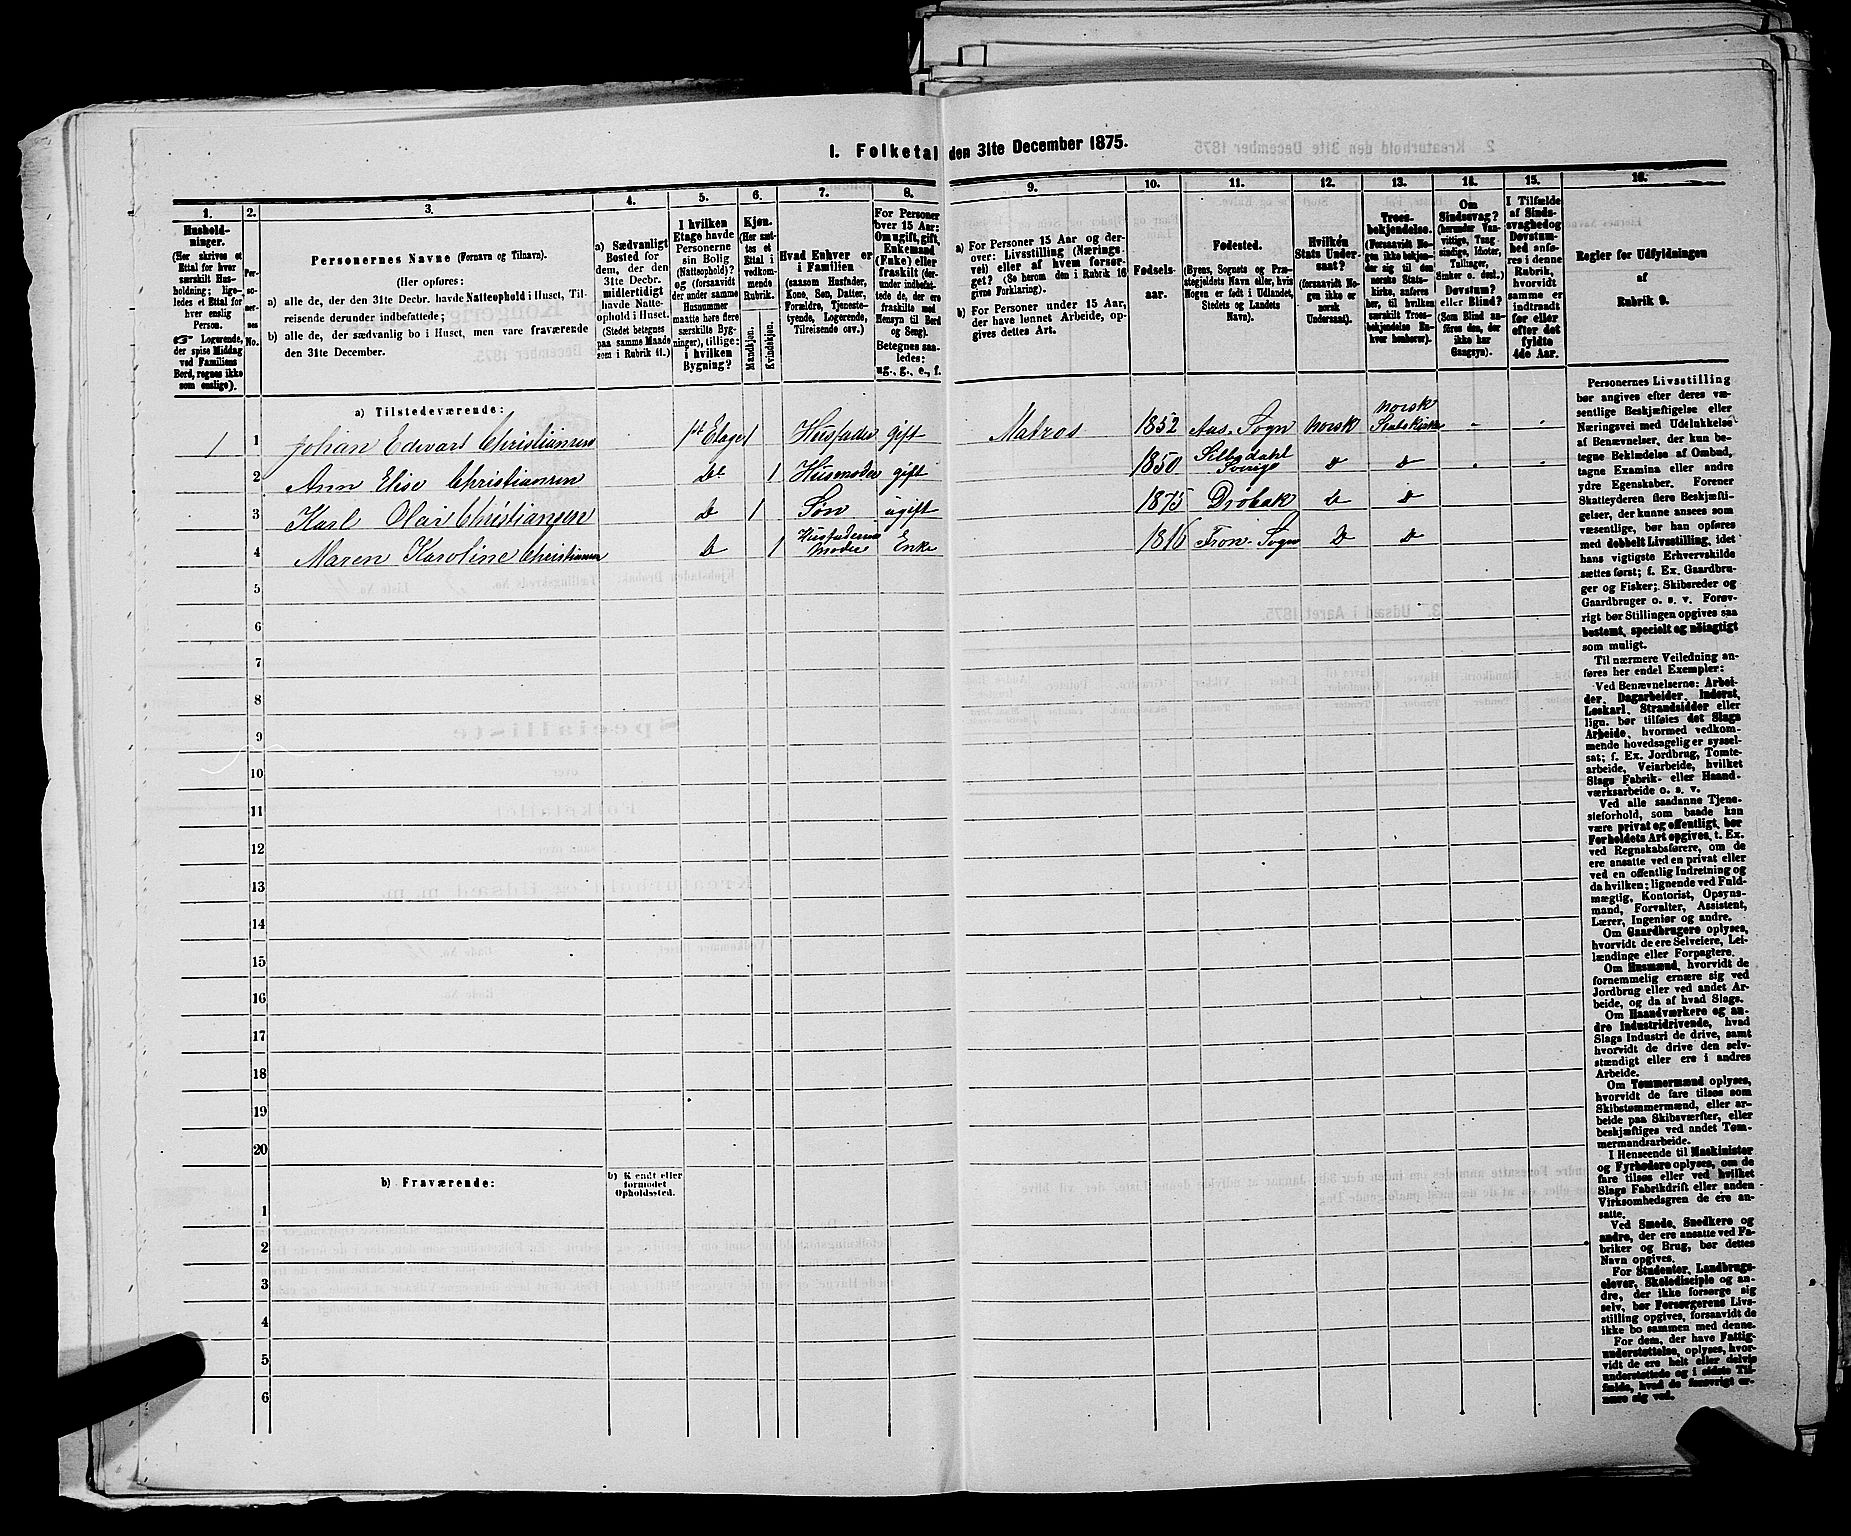 I. Folketal den 31te December 1875.
1.
2.
3.
4.
5.
6.
7.
8.
9.
10.
11.
12.
13.
14.
15.
16.
Hushold-
ninger.
(Her skrives et
Ettal for hver
særskilt Hus-
holdning; lige-
ledes et Ettal for
hver enslig
Person.
☞ Logerende,
der spise Middag
ved Familiens
Bord, regnes ikke
som enslige).
Per-
so-
ner-
nes
No.
Personernes Navne (Fornavn og Tilnavn).
(Her opføres:
a) alle de, der den 31te Decbr. havde Natteophold i Huset, Til-
reisende derunder indbefattede;
b) alle de, der sædvanlig bo i Huset, men vare fraværende
den 31te December.
a) Sædvanligt
Bosted for
dem, der den
31te Decbr.
midlertidigt
havde Natte-
ophold i Huset.
(Stedet betegnes
paa samme Maade
som i Rubrik 11.)
I hvilken
Etage havde
Personerne
sin Bolig
(Natteophold)?
og (forsaavidt
der under samme
Husnummer
maatte være flere
særskilte Byg-
ninger), tillige:
i hvilken
Bygning?
Kjøn.
(Her sæt-
tes et
Ettal i
vedkom-
mende
Rubrik.
Mandkjøn.
Kvindekjøn.
Hvad Enhver er
i Familien
(saasom Husfader,
Kone, Søn, Datter,
Forældre, Tjeneste-
tyende, Logerende,
Tilreisende osv.)
For Personer
over 15 Aar:
Om ugift, gift,
Enkemand
(Enke) eller
fraskilt (der-
under indbefat-
tede de, der ere
fraskilte med
Hensyn til Bord
og Seng).
Betegnes saa-
ledes:
ug., g., e., f.
a) For Personer 15 Aar og der-
over: Livsstilling (Nærings-
vei) eller af hvem forsør-
get? (Se herom den i Rubrik 16
givne Forklaring).
b) For Personer under 15 Aar,
der have lønnet Arbeide, op-
gives dettes Art.
Fødsels-
aar.
Fødested.
(Byens, Sognets og Præ-
stegjeldets Navn eller, hvis
Nogen er født i Udlandet,
Stedets og Landets
Navn).
Hvilken
Stats Under-
saat?
(forsaavidt No-
gen ikke er
norsk
Undersaat).
Troes-
bekjendelse.
(Forsaavidt No-
gen ikke bekjen-
der sig til den
norske Stats-
kirke, anføres
her, til hvilken
særskilt Troes-
bekjendelse En-
hver henhører).
Om
Sindssvag?
(herunder Van-
vittige, Tung-
sindige, Idioter,
Tullinger,
Sinker o. desl.)
Døvstum?
eller Blind?
(Som Blind an-
føres den, der
ikke har
Gangsyn).
I Tilfælde
af Sinds-
svaghed og
Døvstum-
hed anfø-
res i denne
Rubrik,
hvorvidt
samme er
indtraadt
før eller
efter det
fyldte
4de Aar.
Regler for Udfyldningen
af
Rubrik 9.
a) Tilstedeværende:
1 1 Johan Edvart Christiansen 1st Etage 1 Husfader gift Matros 1852 Aas Sogn norsk norsk Statskirke - -
2 Ann Elise Christiansen Do 1 Husmoder gift 1850 Silbodahl Sverige D D - -
3 Karl Olai Christiansen D 1 Søn ugift 1875 Drøbak D D
4 Maren Karoline Christiansen D 1 Husfaderens Moder Enke 1816 Fron Sogn D D
5
6
7
8
9
10
11
12
13
14
15
16
17
18
19
20
b) Fraværende:
b) Kjendt eller
formodet
Opholdssted.
1
2
3
4
5
6
Personernes Livsstilling
bør angives efter deres væ-
sentlige Beskjæftigelse eller
Næringsvei med Udelukkelse
af Benævnelser, der kun be-
tegne Beklædelse af Ombud,
tagne Examina eller andre
ydre Egenskaber. Forener
Skatteyderen flere Beskjæfti-
gelser, der kunne ansees som
væsentlige, bør han opføres
med dobbelt Livsstilling, idet
hans vigtigste Erhvervskilde
sættes først; f. Ex. Gaardbru-
ger og Fisker; Skibsreder og
Gaardbruger o. s. v. Forøv-
rigt bør Stillingen opgives saa
bestemt, specielt og nøiagtigt
som muligt.
Til nærmere Veiledning an-
føres her endel Exempler:
Ved Benævnelserne: Arbei-
der, Dagarbeider, Inderst,
Løskarl, Strandsidder eller
lign. bør tilføies det Slags
Arbeide, hvormed vedkom-
mende hovedsagelig er syssel-
sat; f. Ex. Jordbrug, Tomte-
arbeide, Veiarbeide, hvilket
Slags Fabrik- eller Haand-
værksarbeide o. s. v.
Ved alle saadanne Tjene-
steforhold, som baade kan
være privat og offentligt, bør
Forholdets Art opgives, t. Ex.
ved Regnskabsførere, om de
ere ansatte ved en privat eller
ved en offentlig Indretning og
da hvilken; lignende ved Fuld-
mægtig, Kontorist, Opsyns-
mand, Forvalter, Assistent,
Lærer, Ingeniør og andre.
Om Gaardbrugere oplyses,
hvorvidt de ere Selveiere, Lei-
lændinge eller Forpagtere.
Om Husmænd, hvorvidt de
fornemmelig ernære sig ved
Jordbrug eller ved andet Ar-
beide, og da af hvad Slags.
Om Haandværkere og an-
dre Industridrivende, hvad
Slags Industri de drive, samt
hvorvidt de drive den selv-
stændigt eller ere i andres
Arbeide.
Om Tømmermænd oplyses,
hvorvidt de fare tilsøs som
Skibstømmermænd, eller ar-
beide paa Skibsværfter, eller
beskjæftiges ved andet Tøm-
mermandsarbeide.
I Henseende til Maskinister
og Fyrbødere oplyses, om de
fare tilsøs eller ved hvilket
Slags Fabrikdrift eller anden
Virksomhedsgren de ere an-
satte.
Ved Smede, Snedkere og
andre, der ere ansatte ved Fa-
briker og Brug, bør dettes
Navn opgives.
For Studenter, Landbrugs-
elever, Skoledisciple og an-
dre, der ikke forsørge sig
selv, bør Forsørgerens Livs-
stilling opgives, forsaavidt de
ikke bo sammen med denne.
For dem, der have Fattig-
understøttelse, oplyses, hvor-
vidt de ere helt eller delvis
understøttede og i sidste Til-
fælde, hvad de forøvrigt er-
nære sig ved.